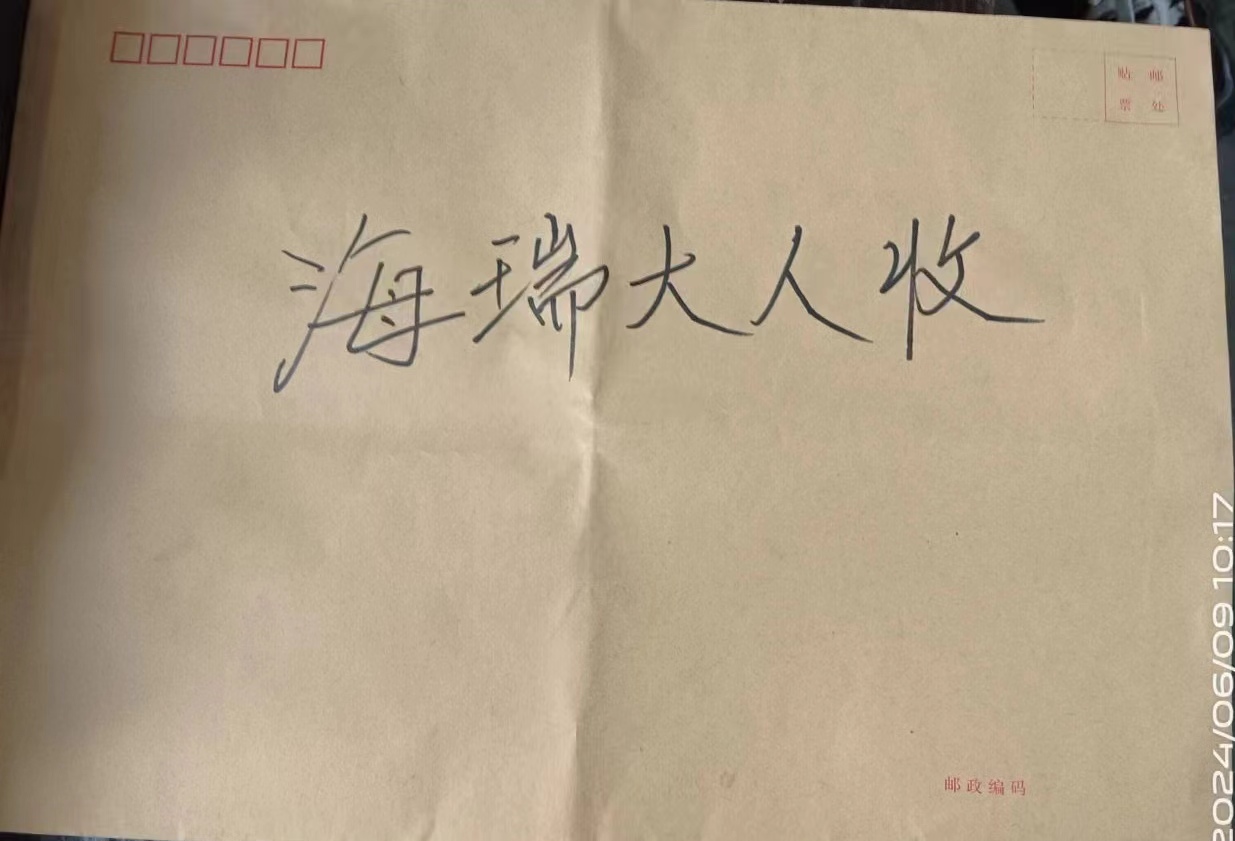 贴 邮
票 处
海瑞大人收
邮政编码
2024/06/09 10:17